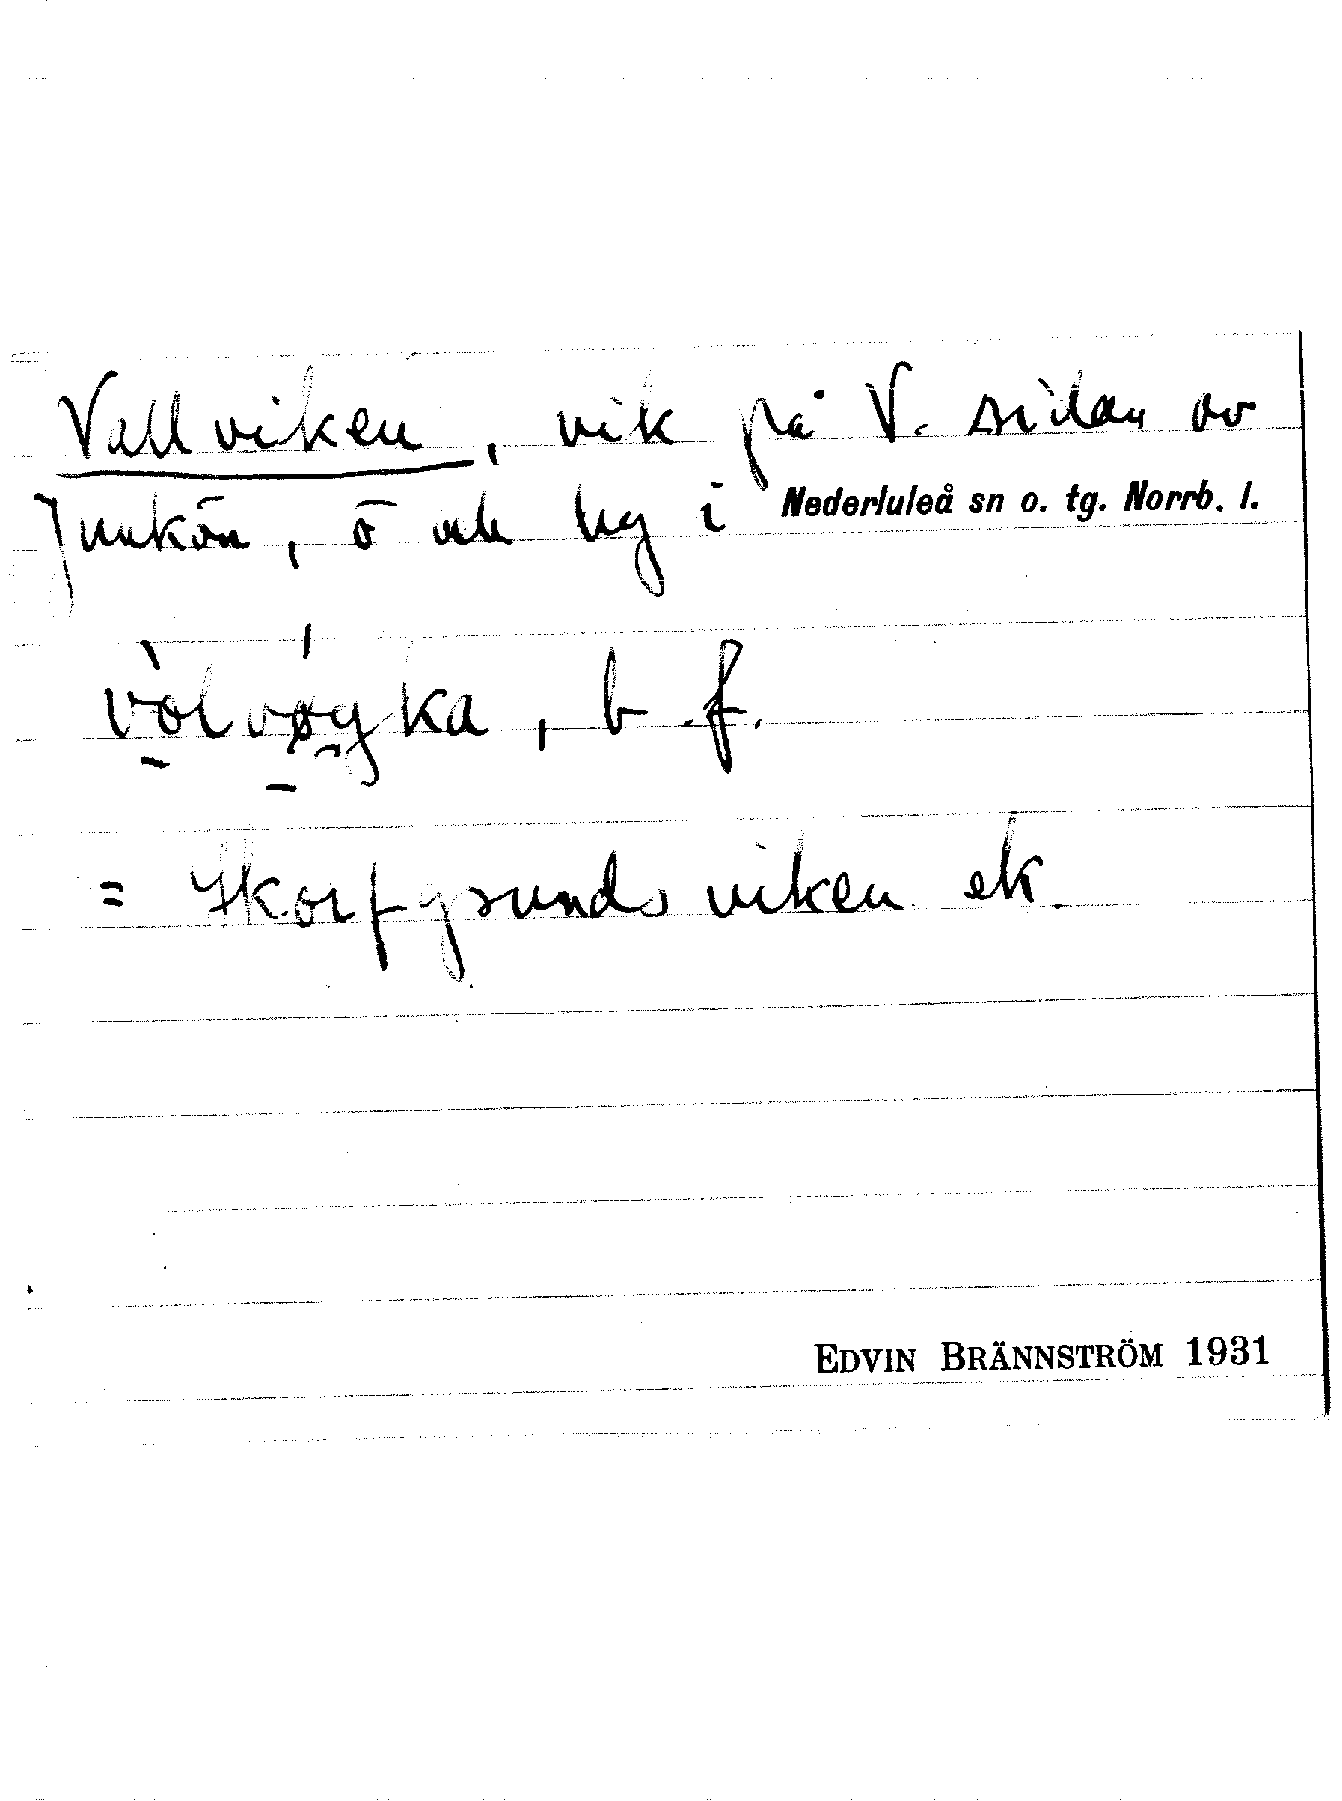 Vallviken, vik på V. sidan av
Junkön, ö och by i Nederluleå sn o. tg. Norrb. l.
vòlvǿyka, b. f.
= Skorfgrundsviken ek.
EDVIN BRÄNNSTRÖM 1931